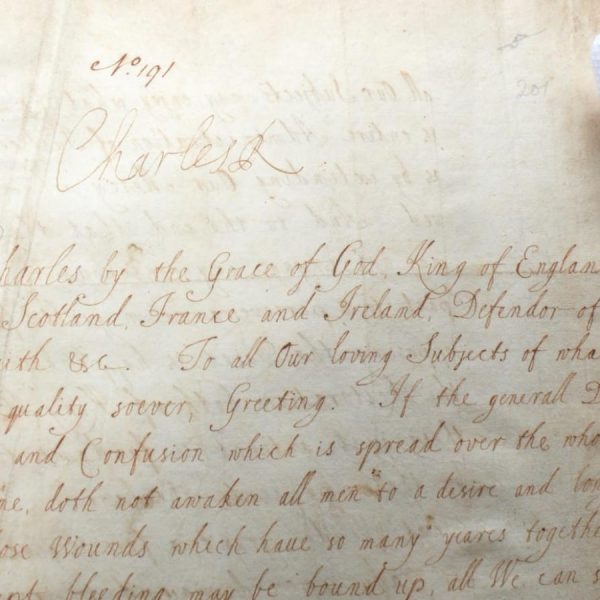 No. 191
201
Charles R
Charles by the Grace of God, King of England
Scotland, France and Ireland, Defendor of
&c. To all Our loving Subjects of what
quality soever, Greeting. If the generall
and Confusion which is spread over the
doth not awaken all men to a desire and
Wounds which have so many yeares together
bleeding may be bound up, all We can